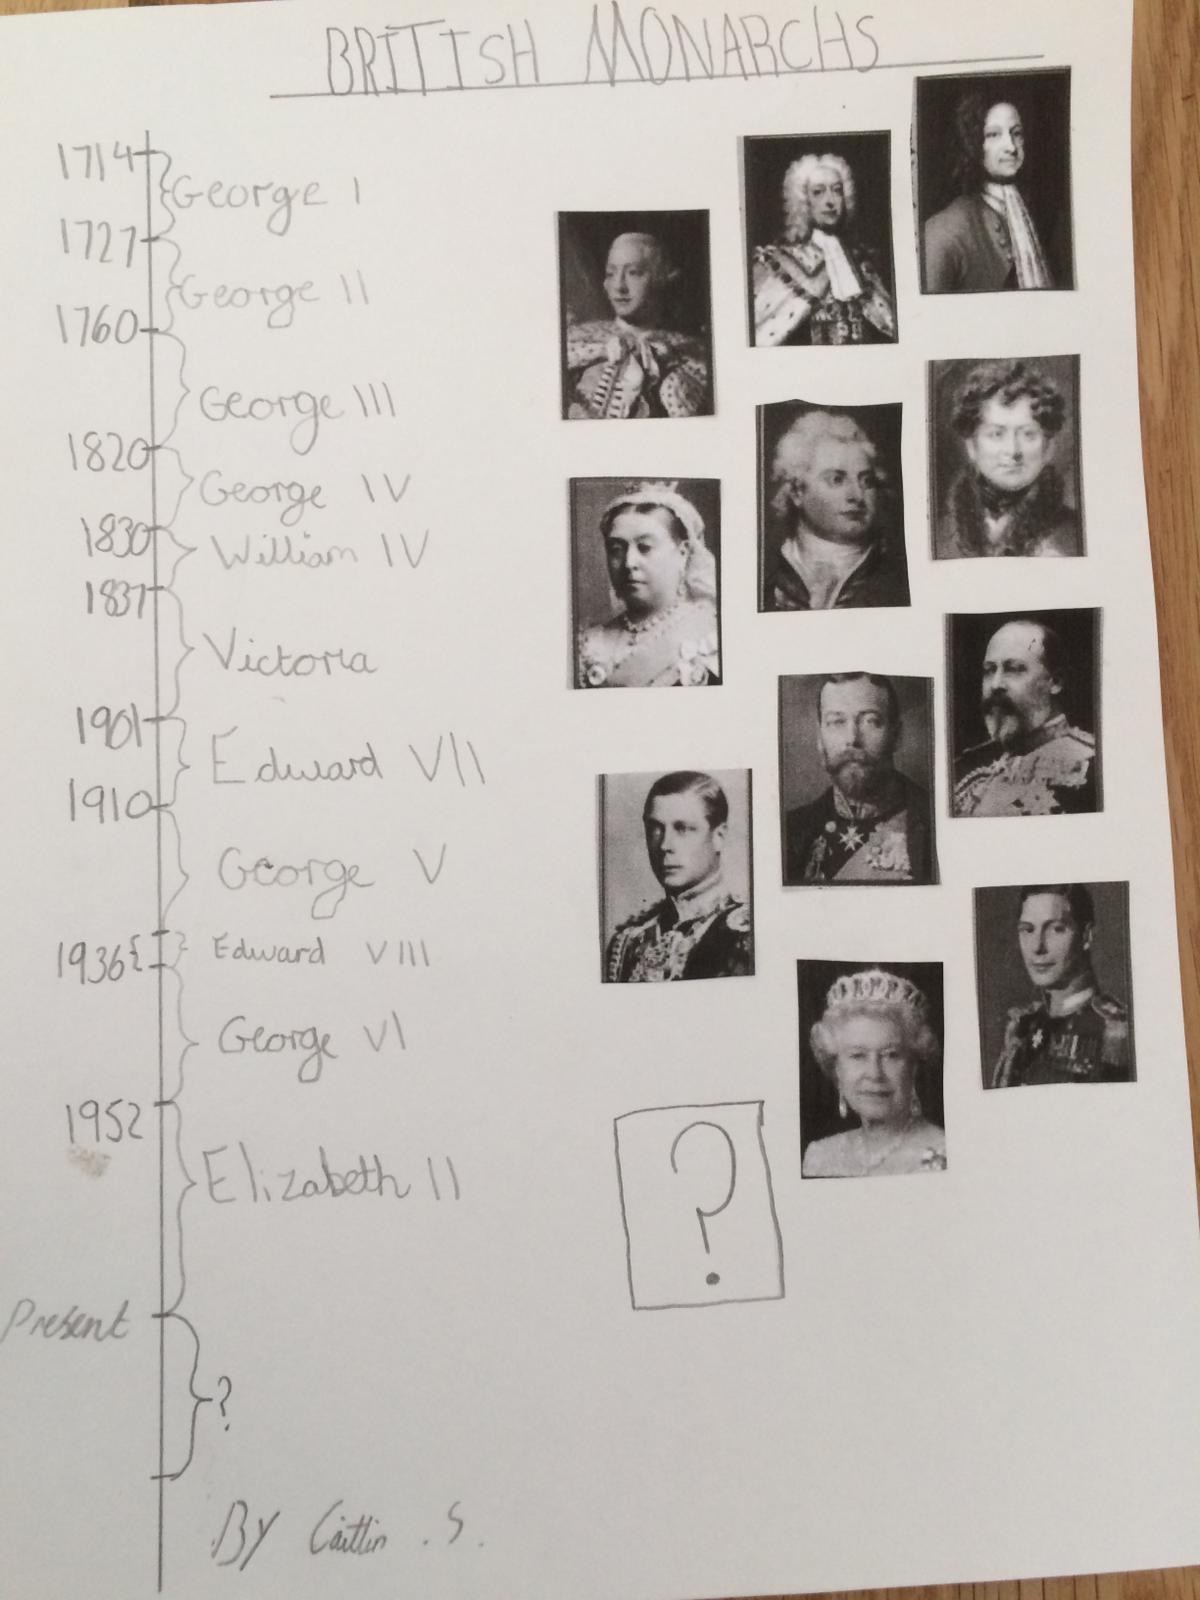 BRITISH MONARCHS
1714
George I
1727
George II
1760
George III
1820
George IV
1830
William IV
1837
Victoria
1901
Edward VII
1910
George V
1936
Edward VIII
George VI
1952
Elizabeth II
?
Present
?
By Caitlin . S.